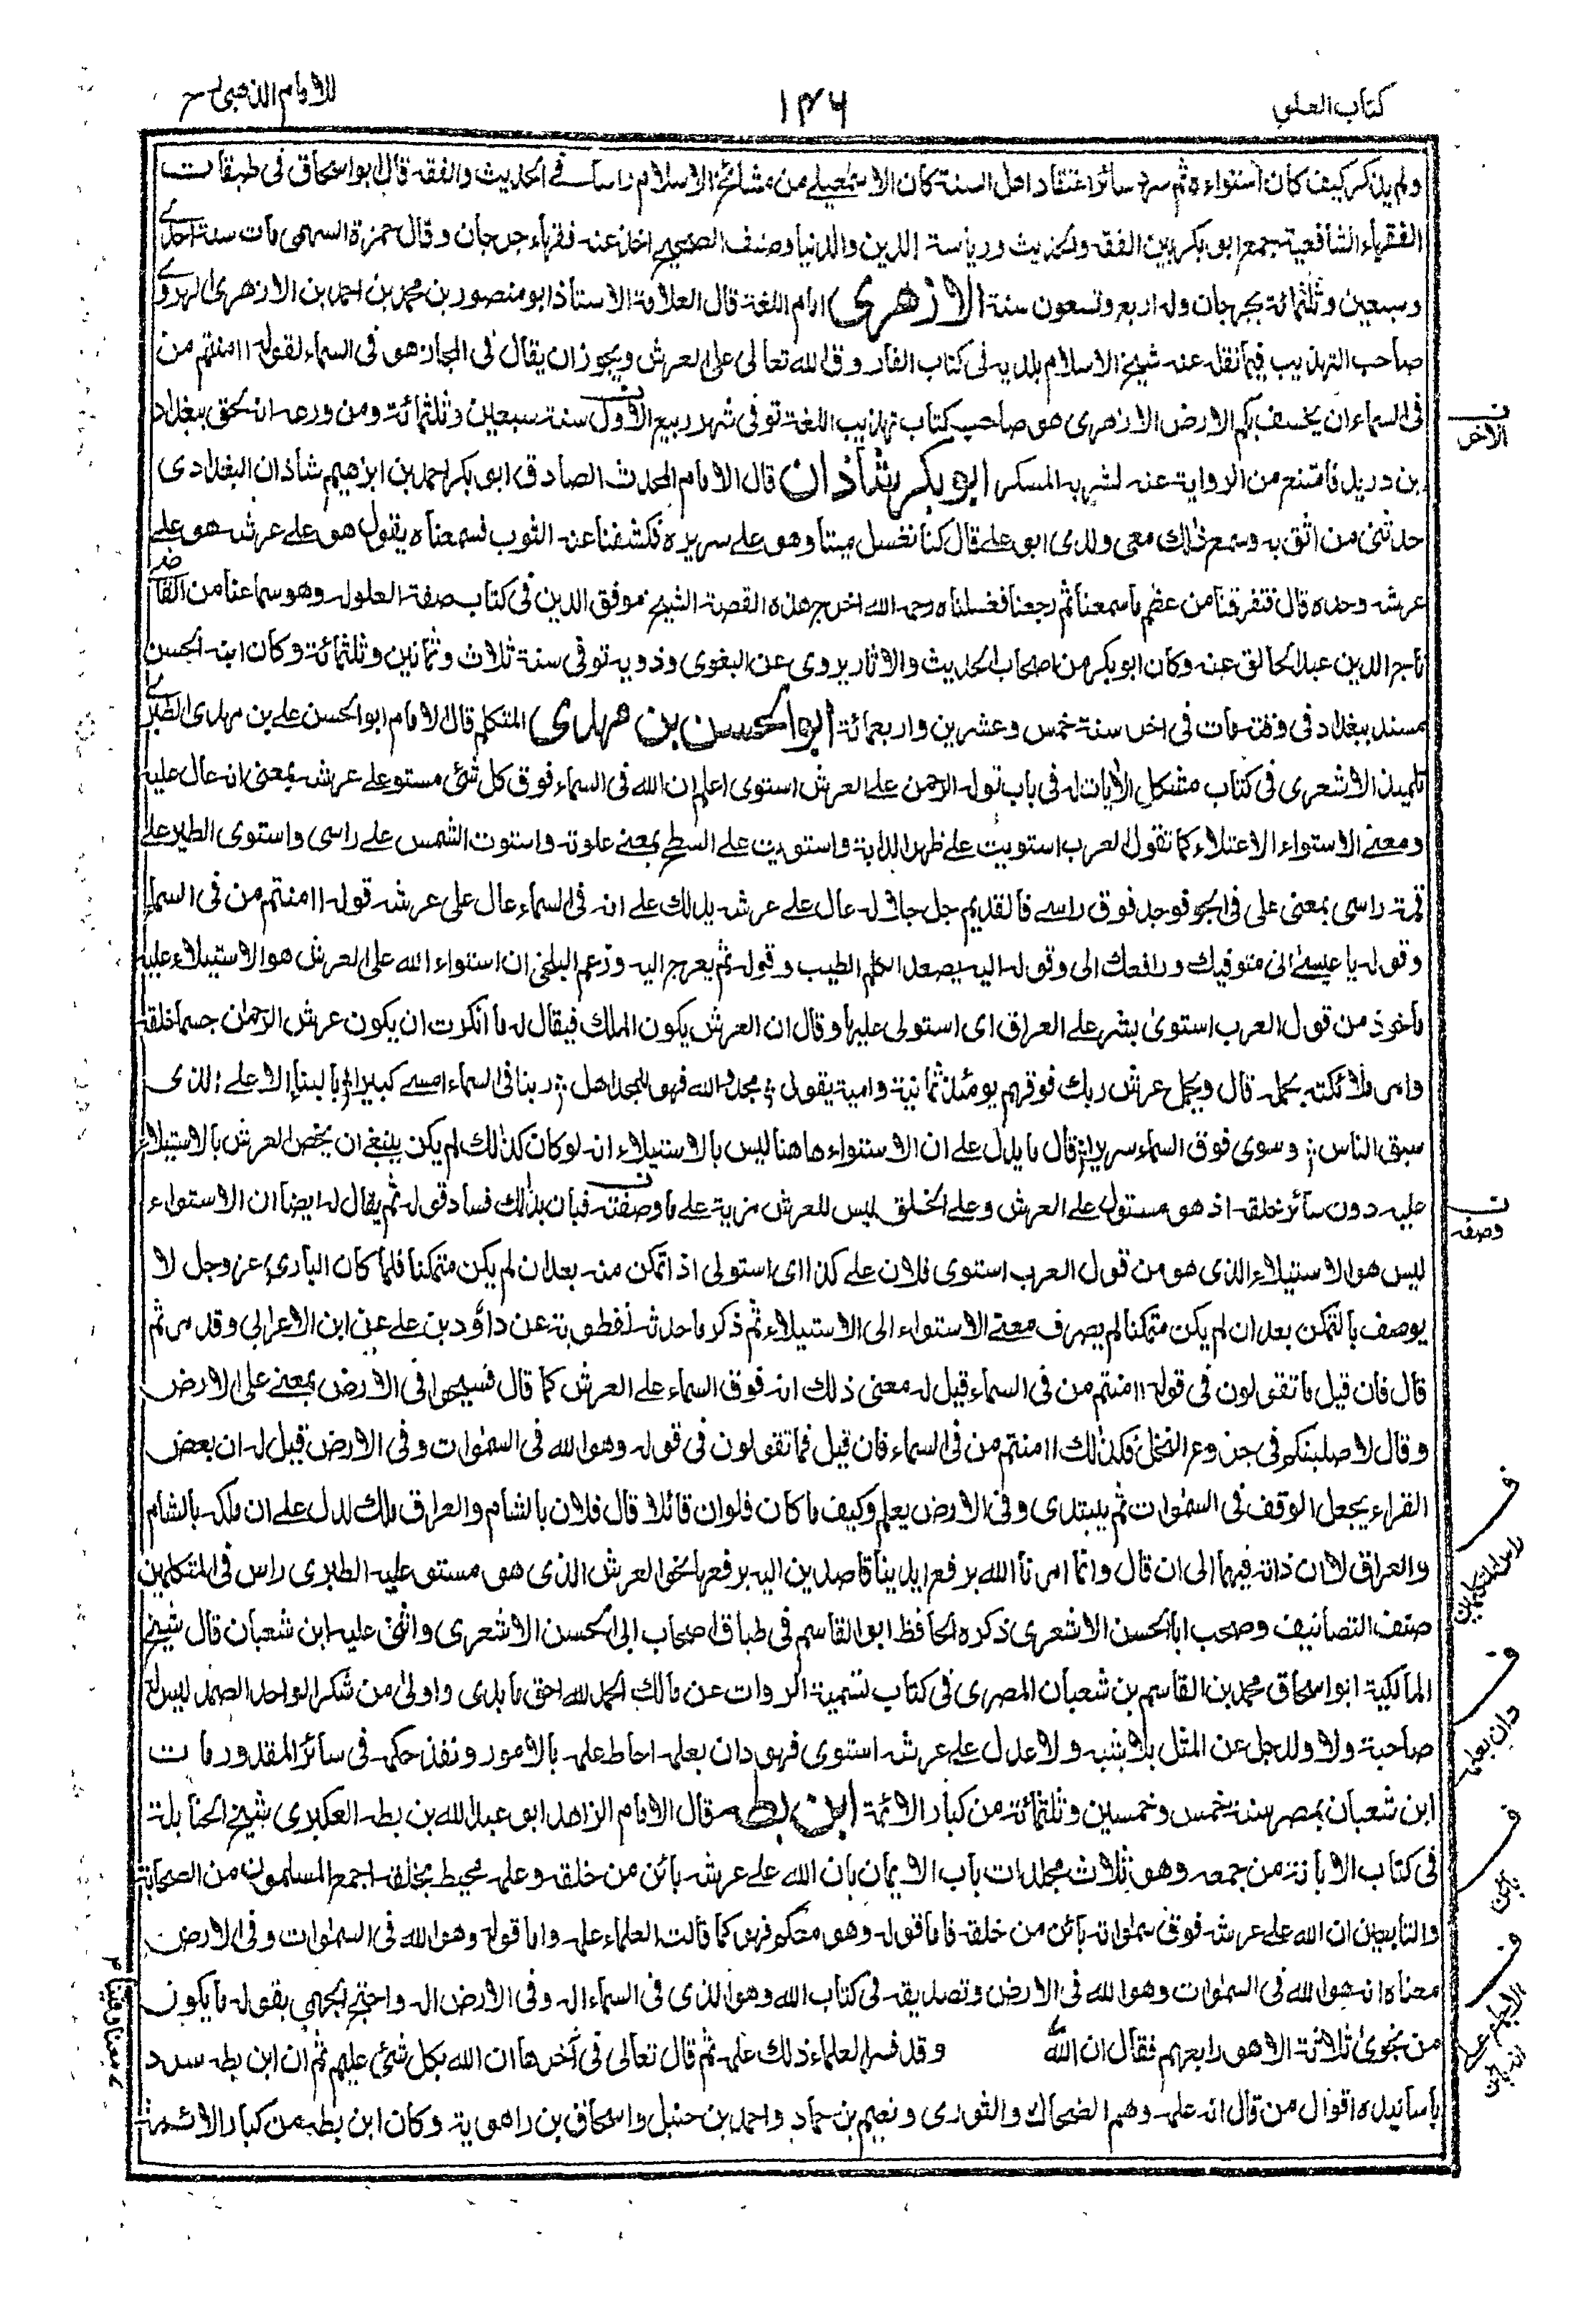 كتاب العلو
١٣٦
للامام الذهبى رح
ولم يذكر كيف كان استواءه ثم سرد سائر اعتقاد اهل السنة كان الاسمعيلے من مشائخ الاسلام راسا فے الحديث والفقه قال ابو اسحاق فى طبقات
الفقهاء الشافعية جمع ابو بكر بين الفقه والحديث ورياسة الدين والدنيا وصنف الصحيح اخذ عنه فقهاء جرجان وقال حمزة السهمى مات سنة احدے
وسبعين وثلثمائة بجرجان وله اربع وتسعون سنة الازهرى امام اللغة قال العلامة الاستاذ ابو منصور بن محمد بن احمد بن الازهرى الهروے
صاحب التهذيب فيما نقل عنه شيخ الاسلام بلديه فى كتاب الفاروق الله تعالى على العرش ويجوز ان يقال فى المجاز هو فى السماء لقوله اامنتم من
فى السماء ان يخسف بكم الارض الازهرى هو صاحب كتاب تهذيب اللغة توفى شهر ربيع الاول سنة سبعين وثلثمائة ومن ورعه انه لحق ببغداد
الآخر
ابن دريد فامتنع من الرواية عنه لشربه المسكر ابو بكر شاذان قال الامام المحدث الصادق ابو بكر احمد بن ابراهيم شاذان البغدادى
حدثنى من اثق به وسمع ذلك معى ولدى ابو علے قال كنا نغسل ميتا وهو علے سريره فكشفنا عنه الثوب فسمعناه يقول هو علے عرشه هو علے
عرشه وحده قال فتفرقنا من عظم ما سمعنا ثم رجعنا فغسلناه رحمه الله اخرج هذه القصة الشيخ موفق الدين فى كتاب صفة العلو له وهو سماعنا من القاضے
تاج الدين عبد الخالق عنه وكان ابو بكر من اصحاب الحديث والاثار يروى عن البغوى وذويه توفى سنة ثلاث وثمانين وثلثمائة وكان ابنه الحسن
مسند ببغداد فى وقته مات فى اخر سنة خمس وعشرين واربعمائة ابو الحسن بن مهدى المتكلم قال الامام ابو الحسن علے بن مهدى الطبرے
تلميذ الاشعرى فى كتاب مشكل الآيات له فى باب قوله الرحمن علے العرش استوى اعلم ان الله فى السماء فوق كل شئ مستو علے عرشه بمعنى انه عال عليه
ومعنے الاستواء الاعتلاء كما تقول العرب استويت علے ظهر الدابة واستويت علے السطح بمعنے علوته واستوت الشمس علے راسى واستوى الطير علے
قمة راسى بمعنى على فى الجو فوجد فوق راسے فالقديم جل جلاله عال علے عرشه يدلك علے انه فى السماء عال على عرشه قوله اامنتم من فى السماء
وقوله يا عيسےٰ انى متوفيك ورافعك الى وقوله اليه يصعد الكلم الطيب وقوله ثم يعرج اليه وزعم البلخى ان استواء الله على العرش هو الاستيلاء عليه
ماخوذ من قول العرب استوىٰ بشر علے العراق اى استولى عليها وقال ان العرش يكون الملك فيقال له ما انكرت ان يكون عرش الرحمٰن جسما خلقه
وامر ملائكته بحمله قال ويحمل عرش ربك فوقهم يومئذ ثمانية وامية يقول ؛ مجدوا الله فهو للمجد اهل ؛ ربنا فى السماء امسے كبيرا ؛ بالبناء الاعلے الذى
سبق الناس ؛ وسوى فوق السماء سريرا ؛ قال مما يدل علے ان الاستواء هاهنا ليس بالاستيلاء انه لو كان كذلك لم يكن ينبغے ان يخص العرش بالاستيلاء
عليه دون سائر خلقه اذ هو مستول علے العرش وعلے الخلق ليس للعرش مزية علے ما وصفته فبان بذلك فساد قوله ثم يقال له ايضا ان الاستواء
وصفه
ليس هو الاستيلاء الذى هو من قول العرب استوى فلان علے كذا اى استولى اذا تمكن منه بعد ان لم يكن متمكنا فلما كان البارئ عز وجل لا
يوصف بالتمكن بعد ان لم يكن متمكنا لم يصرف معنے الاستواء الى الاستيلاء ثم ذكر ما حدثه نفطوية عن داؤد بن علے عن ابن الاعرابى وقد مر ثم
قال فان قيل ما تقولون فى قوله اامنتم من فى السماء قيل له معنى ذلك انه فوق السماء علے العرش كما قال فسيحوا فى الارض بمعنے على الارض
وقال لاصلبنكم فى جذوع النخل فكذلك اامنتم من فى السماء فان قيل فما تقولون فى قوله وهو الله فى السمٰوات وفى الارض قيل له ان بعض
القراء يجعل الوقف فى السمٰوات ثم يبتدى وفى الارض يعلم وكيف ما كان فلو ان قائلا قال فلان بالشام والعراق ملك لدل علے ان ملكه بالشام
والعراق لا ان ذاته فيهما الى ان قال وانما امرنا الله برفع ايدينا قاصدين اليه برفعها نحو العرش الذى هو مستو عليه الطبرى راس فى المتكلمين
راس المتكلمين
صنف التصانيف وصحب ابا الحسن الاشعرى ذكره الحافظ ابو القاسم فى طباق اصحاب ابى الحسن الاشعرى واثنى عليه ابن شعبان قال شيخ
المالكية ابو اسحاق محمد بن القاسم بن شعبان المصرى فى كتاب تسمية الروات عن مالك الحمد لله احق ما بدى واولىٰ من شكر الواحد الصمد ليس له
صاحبة ولا ولد جل عن المثل بلا شبه ولا عدل علے عرشه استوى فهو دان بعلمه احاط علمه بالامور ونفذ حكمه فى سائر المقدورات مات
دان بعلمه
ابن شعبان بمصر سنة خمس وخمسين وثلثمائة من كبار الائمة ابن بطه قال الامام الزاهد ابو عبد الله بن بطه العكبرى شيخ الحنابلة
فى كتاب الابانة من جمعه وهو ثلاث مجلدات باب الايمان بان الله علے عرشه بائن من خلقه وعلمه محيط بخلقه اجمع المسلمون من الصحابة
بائن
والتابعين ان الله علے عرشه فوق سمٰواته بائن من خلقه فاما قوله وهو معكم فهو كما قالت العلماء علمه واما قوله وهو الله فى السمٰوات وفى الارض
معناه انه هو الله فى السمٰوات وهو الله فى الارض وتصديقه فى كتاب الله وهو الذى فى السماء اله وفى الارض اله واحتج الجهمى بقوله ما يكون
من نجوىٰ ثلاثة الا هو رابعهم فقال ان الله وقد فسر العلماء ذلك علمه ثم قال تعالى فى آخرها ان الله بكل شئ عليم ثم ان ابن بطه سرد
معنا وفينا
باسانيده اقوال من قال انه علمه وهم الضحاك والثورى ونعيم بن حماد واحمد بن حنبل واسحاق بن راهوية وكان ابن بطه من كبار الائمة